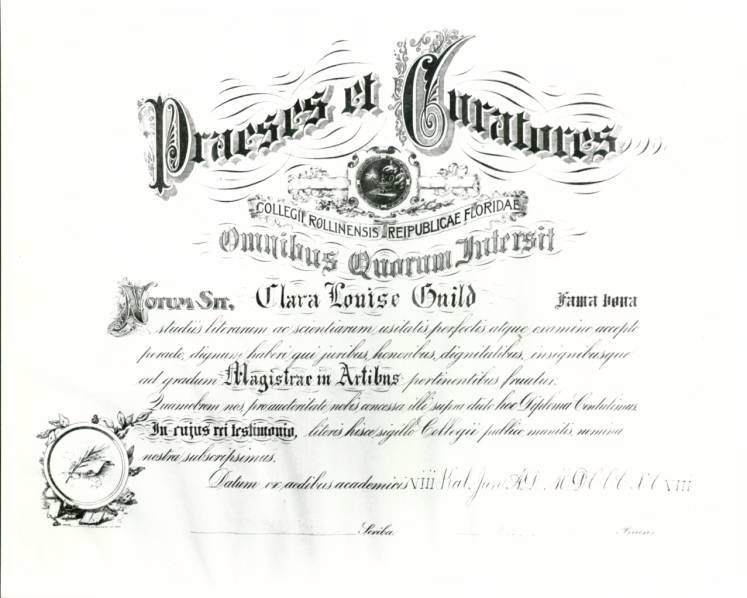 Praeses et Curatores
COLLEGII ROLLINENSIS REIPUBLICAE FLORIDAE
Omnibus Quorum Intersit
NOTUM SIT, Clara Louise Guild Fama bona
studiis literarum ac scientiarum usitatis perfectis atque examine accepto
peracto, dignum haberi qui juribus, honoribus, dignitatibus, insignibusque
ad gradum Magistrae in Artibus pertinentibus fruatur.
Quamobrem nos, pro auctoritate nobis concessa illi supra dicto hoc Diploma Contulimus.
In cujus rei testimonio, literis hisce sigillo Collegii publice munitis, nomina
nostra subscripsimus.
Datum ex aedibus academicis VIII Kal. Jun A.D. MDCCCXCVIII
Scriba.